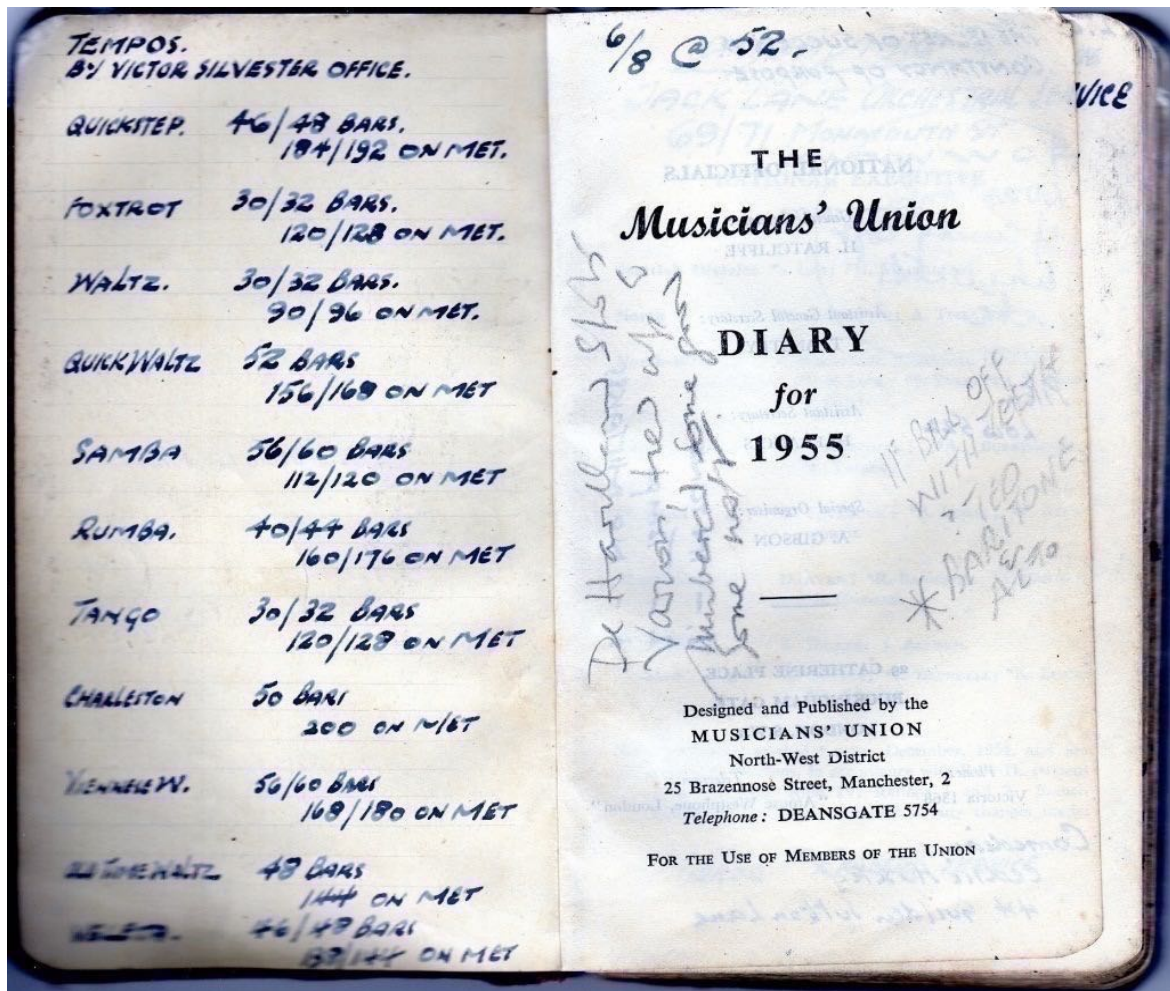 TEMPOS.
BY VICTOR SILVESTER OFFICE.
QUICKSTEP. 46/48 BARS.
184/192 ON MET.
FOXTROT 30/32 BARS.
120/128 ON MET.
WALTZ. 30/32 BARS.
90/96 ON MET.
QUICK WALTZ 52 BARS
156/168 ON MET
SAMBA 56/60 BARS
112/120 ON MET
RUMBA. 40/44 BARS
160/176 ON MET
TANGO 30/32 BARS
120/128 ON MET
CHARLESTON 50 BARS
200 ON MET
VIENNESE W. 56/60 BARS
168/180 ON MET
OLD TIME WALTZ 48 BARS
144 ON MET
VELETA. 46/48 BARS
138/144 ON MET
6/8 @ 52.
VICE
THE
Musicians' Union
DIARY
for
1955
De Havilland
numbered some
some not
11 BAR OFF
WITH
TED
* BARITONE
ALTO
Designed and Published by the
MUSICIANS' UNION
North-West District
25 Brazennose Street, Manchester, 2
Telephone: DEANSGATE 5754
FOR THE USE OF MEMBERS OF THE UNION